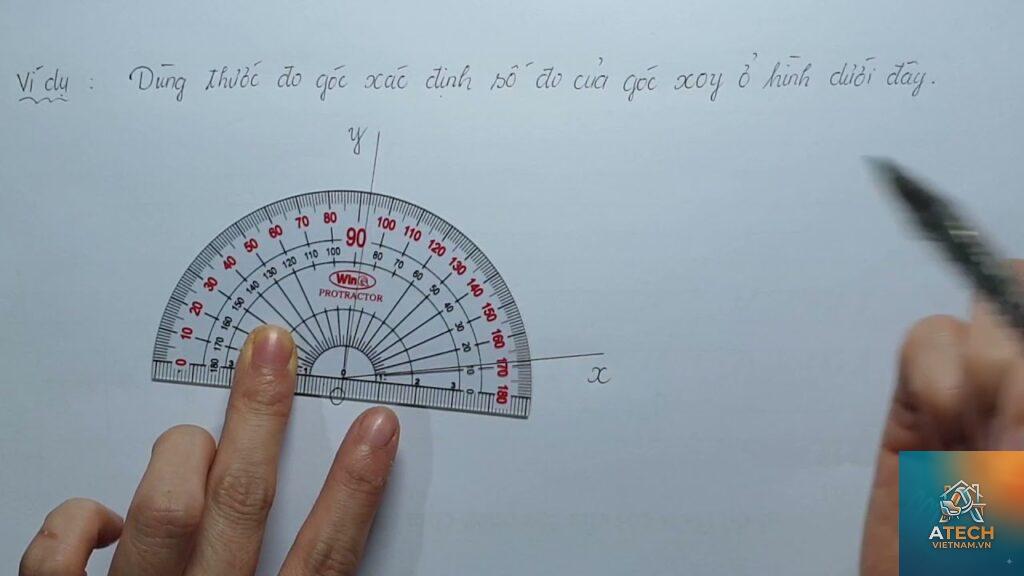 Ví dụ : Dùng thước đo góc xác định số đo của góc xoy ở hình dưới đây.
y
80 90 100
70 110
60 120
50 130
40 140
30 150
20 160
10 170
0 180
100 80
110 70
120 60
130 50
140 40
150 30
160 20
170 10
180 0
Win
PROTRACTOR
x
3 1 0 1 2 3
O
ATECH
VIETNAM.VN